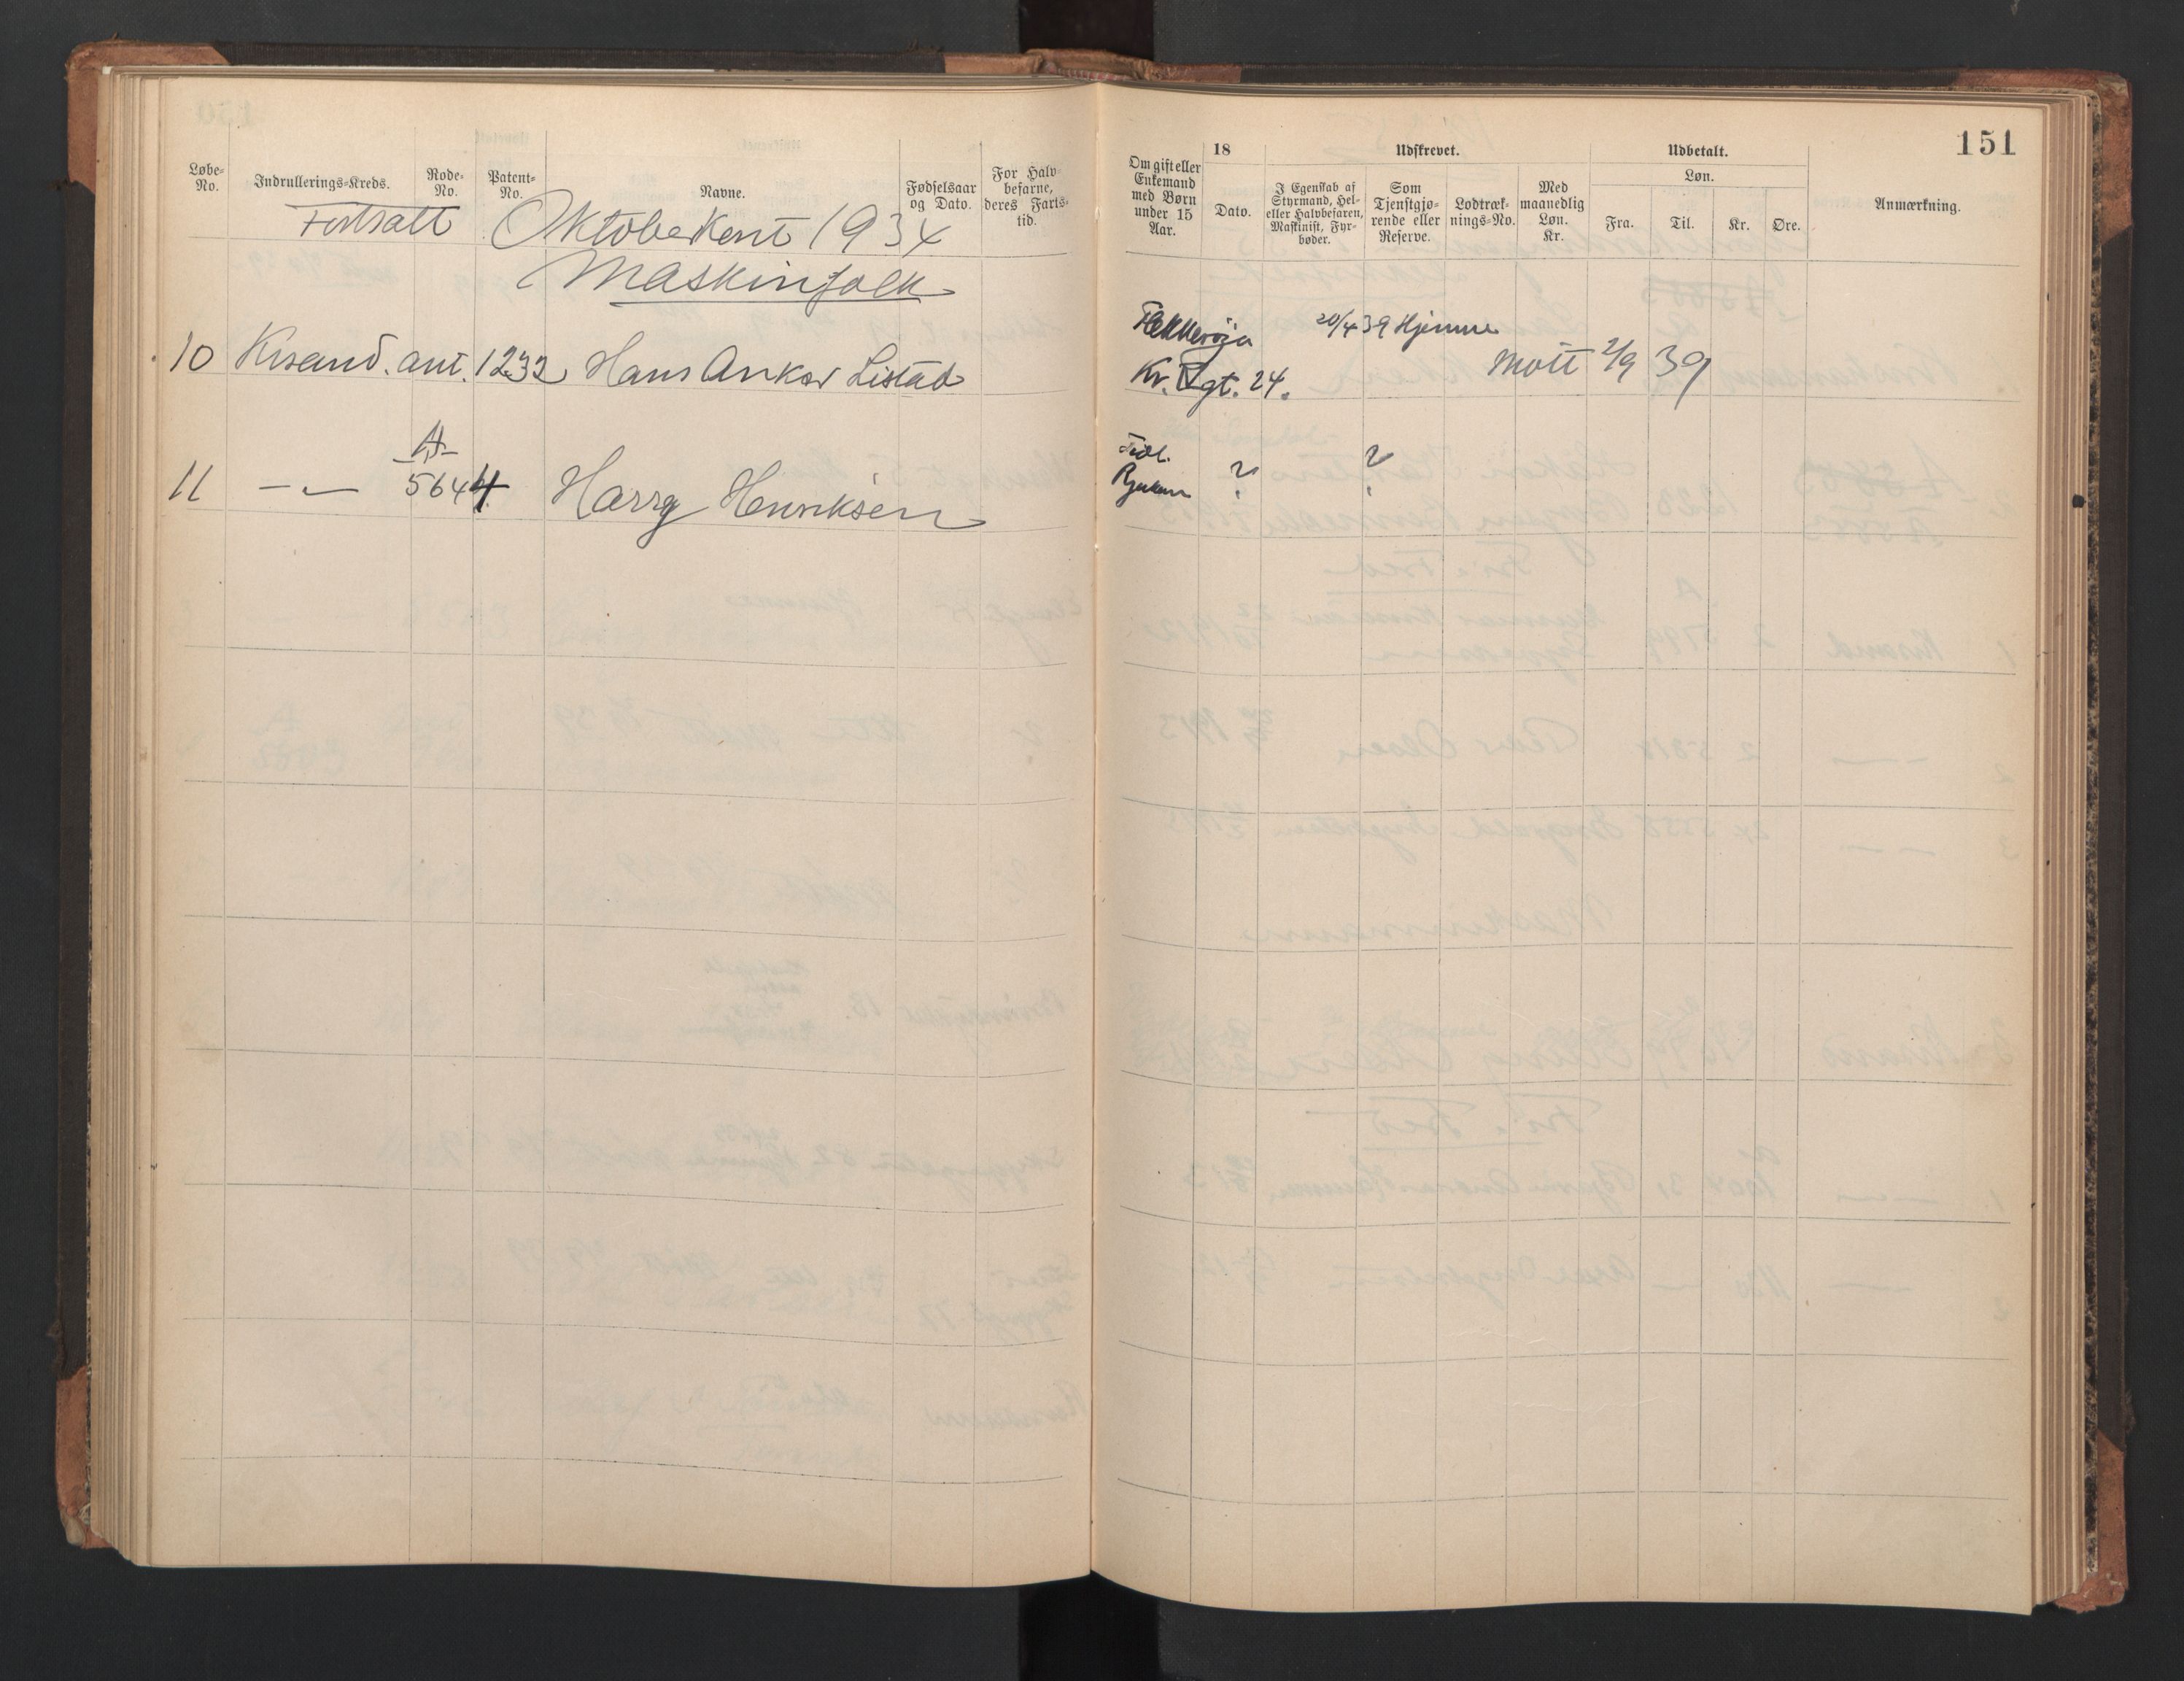 151
Løbe-No.
Indrullerings-Kreds.
Rode-No.
Patent-No.
Navne.
Fødselsaar og Dato.
For Halvbefarne, deres Fartstid.
Om gift eller Enkemand med Børn under 15 Aar.
18
Dato.
Udskrevet.
I Egenskab af Styrmand, Hel- eller Halvbefaren, Maskinist, Fyrbøder.
Som Tjenstgjørende eller Reserve.
Lodtræknings-No.
Med maanedlig Løn. Kr.
Udbetalt.
Løn.
Fra.
Til.
Kr.
Øre.
Anmærkning.
Fortsatt Oktober Kont 1934
Maskinfolk
Flekkerøya 20/4 39 Hjemme
10 Krsand. ant. 1232 Hans Ankar Listad Kr. gt. 24. Mött 2/9 39
A
11 5644 Harry Henriksen Rjukan ? ?